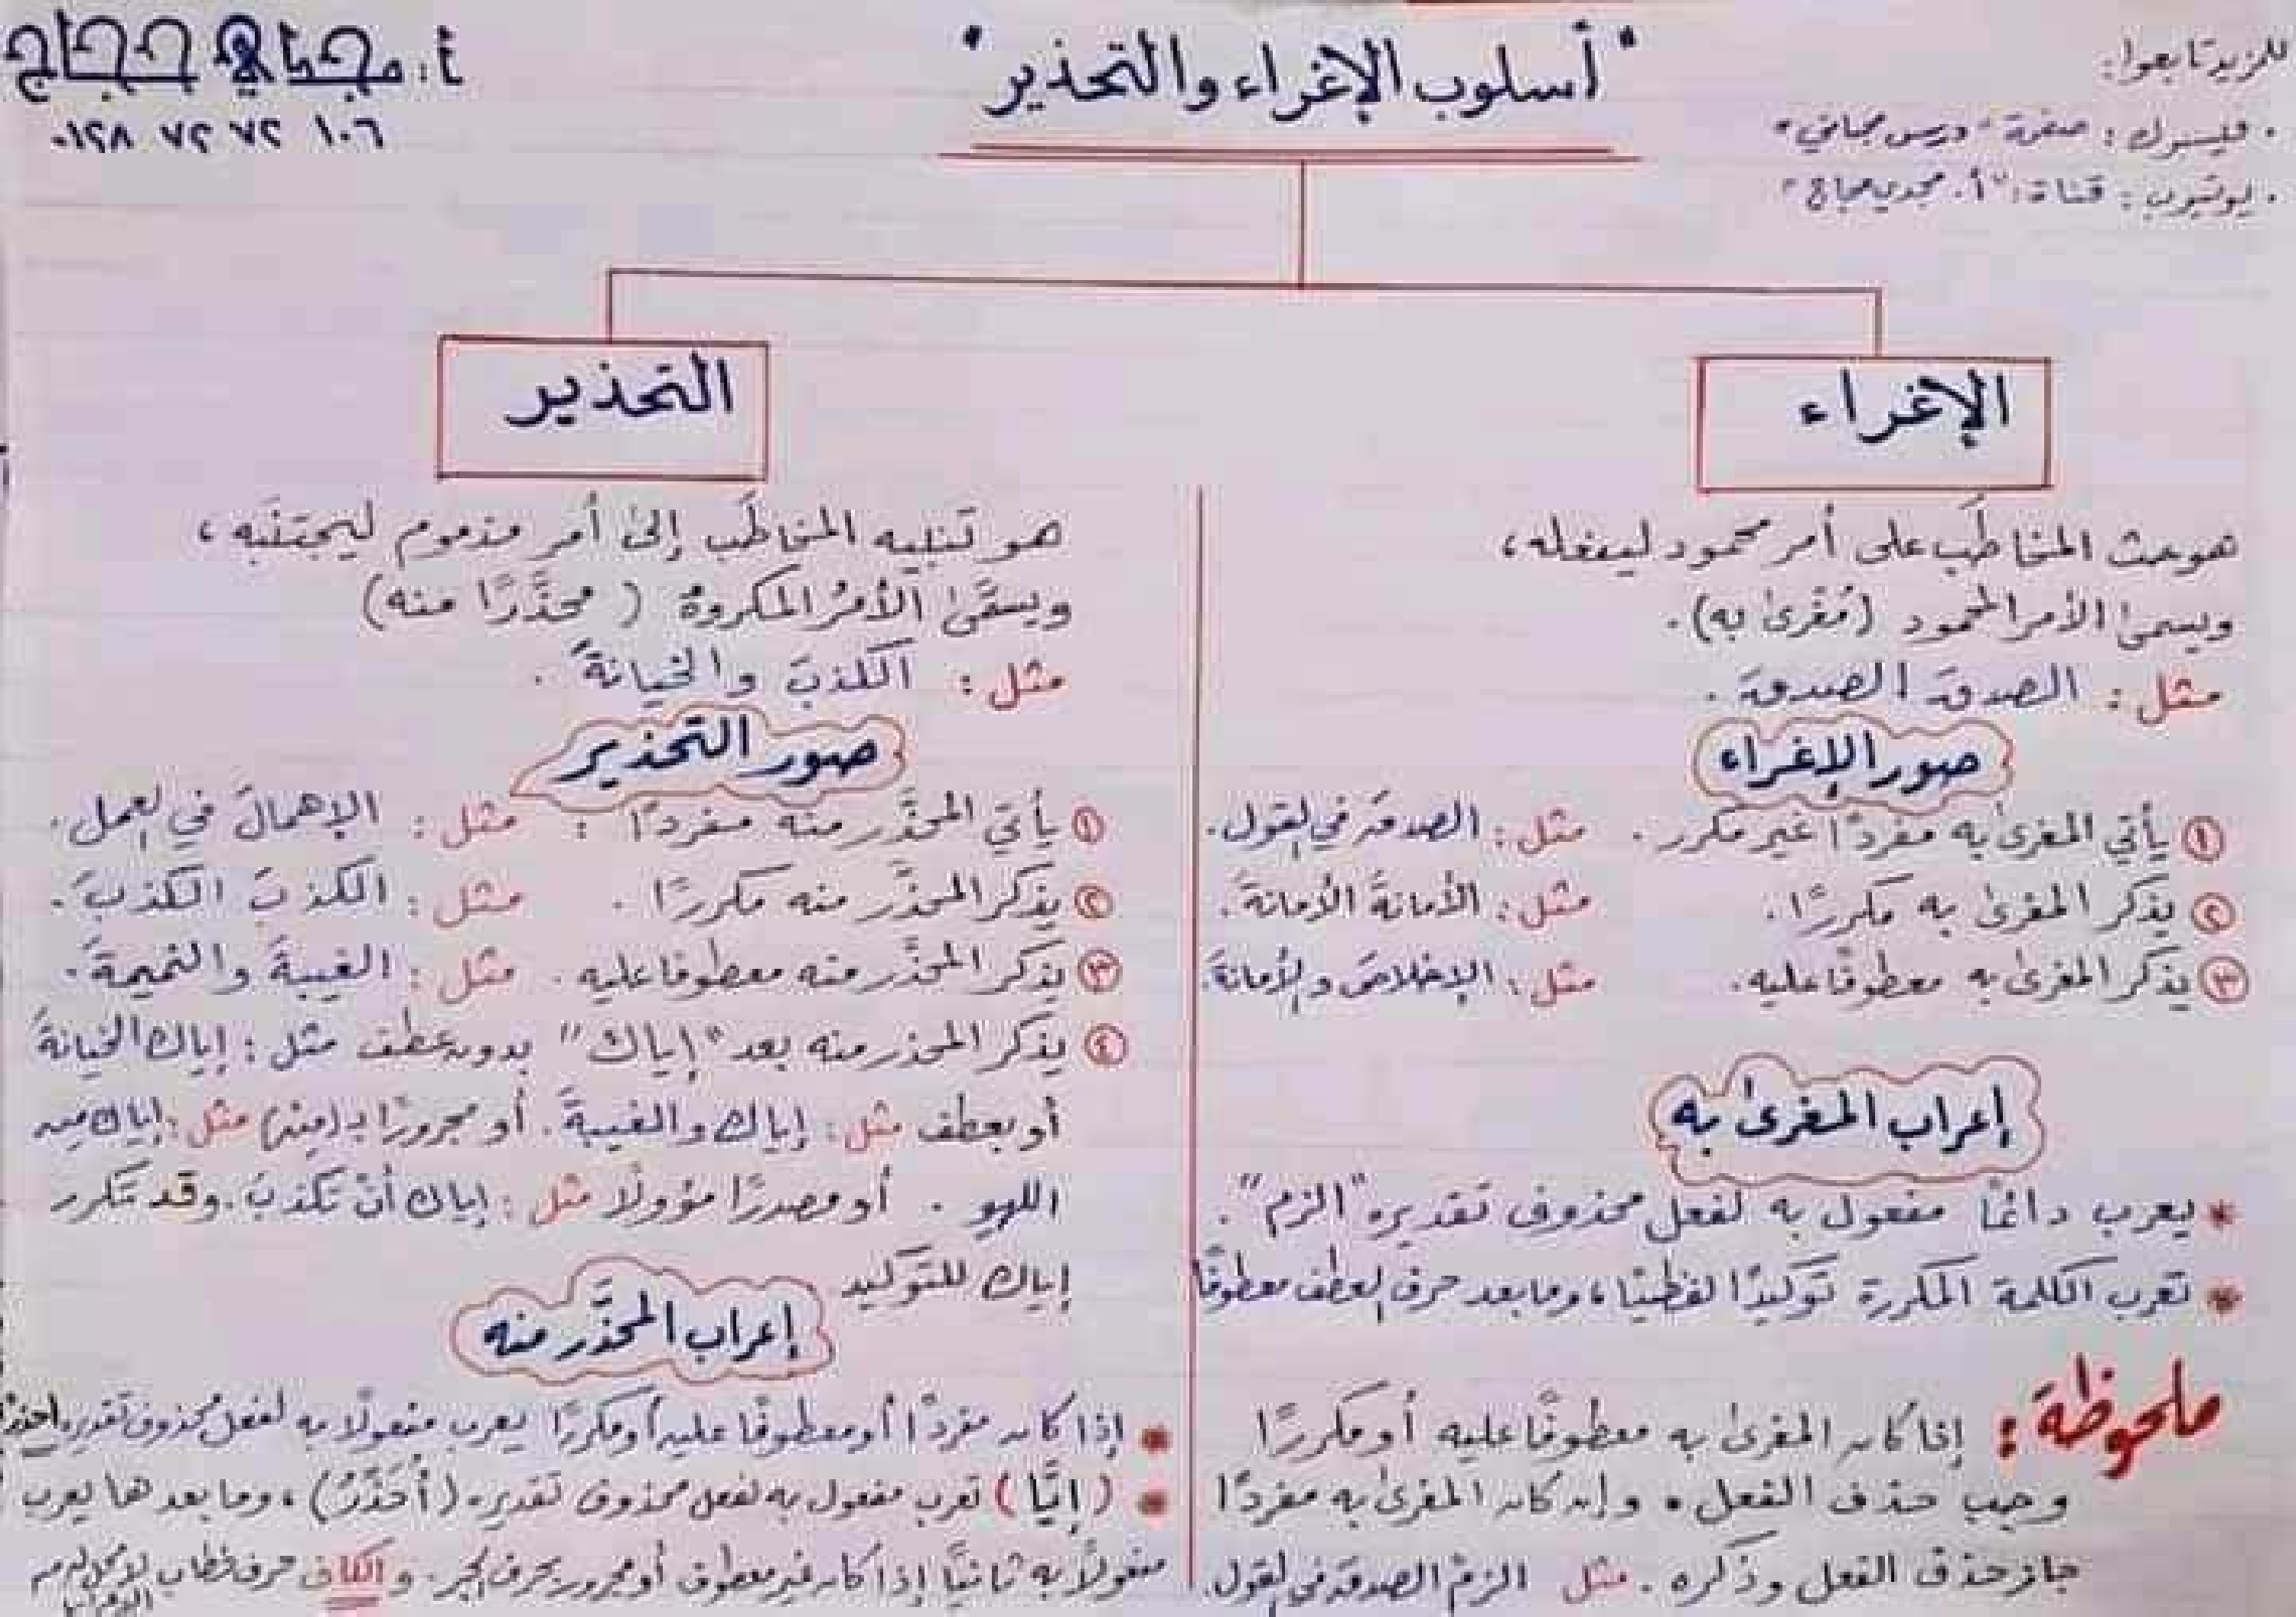 "أسلوب الإغراء والتحذير"
للمزيد تابعوا:
• فيسبوك: صفحة "درس مجاني"
• يوتيوب: قناة: "أ. مجدي حجاج"
أ: مجدي حجاج
٠١٢٨ ٧٢ ٧٢ ١٠٦
الإغراء
هو حث المخاطَب على أمر محمود ليفعله،
ويسمى الأمر المحمود (مُغْرىٰ به).
مثل: الصدقَ الصدقَ.
صور الإغراء
① يأتي المغرىٰ به مفردًا غير مكرر. مثل: الصدقَ في القول.
② يذكر المغرىٰ به مكررًا. مثل: الأمانةَ الأمانةَ.
③ يذكر المغرىٰ به معطوفًا عليه. مثل: الإخلاصَ والأمانةَ.
إعراب المغرىٰ به
* يعرب دائمًا مفعول به لفعل محذوف تقديره "الزم".
* تعرب الكلمة المكررة توكيدًا لفظيًا، وما بعد حرف العطف معطوفًا
ملحوظة: إذا كان المغرىٰ به معطوفًا عليه أو مكررًا
وجب حذف الفعل. وإن كان المغرىٰ به مفردًا
جاز حذف الفعل وذكره. مثل الزمْ الصدقَ في القول.
التحذير
هو تنبيه المخاطَب إلىٰ أمر مذموم ليجتنَبه،
ويسمَّىٰ الأمرُ المكروهُ (محذَّرًا منه)
مثل: الكذبَ والخيانةَ.
صور التحذير
① يأتي المحذَّر منه مفردًا: مثل: الإهمالَ في العمل.
② يذكر المحذَّر منه مكررًا. مثل: الكذبَ الكذبَ.
③ يذكر المحذَّر منه معطوفا عليه. مثل: الغيبةَ والنميمةَ.
④ يذكر المحذر منه بعد "إياك" بدون عطف مثل: إياك الخيانةَ
أو بعطف مثل: إياك والغيبةَ. أو مجرورًا بـ(مِن) مثل: إياك من
اللهوِ. أو مصدرًا مؤولًا مثل: إياك أنْ تكذبَ. وقد تتكرر
إياك للتوكيد
إعراب المحذَّر منه
* إذا كان مفردًا أو معطوفًا عليه أو مكررًا يعرب مفعولًا به لفعل محذوف تقديره احذر
* (إيَّا) تعرب مفعول به لفعل محذوف تقديره (أُحَذِّرُ)، وما بعدها يعرب
مفعولًا به ثانيًا إذا كان غير معطوف أو مجرور بحرف الجر. والكاف حرف خطاب لا محل له من
الإعراب